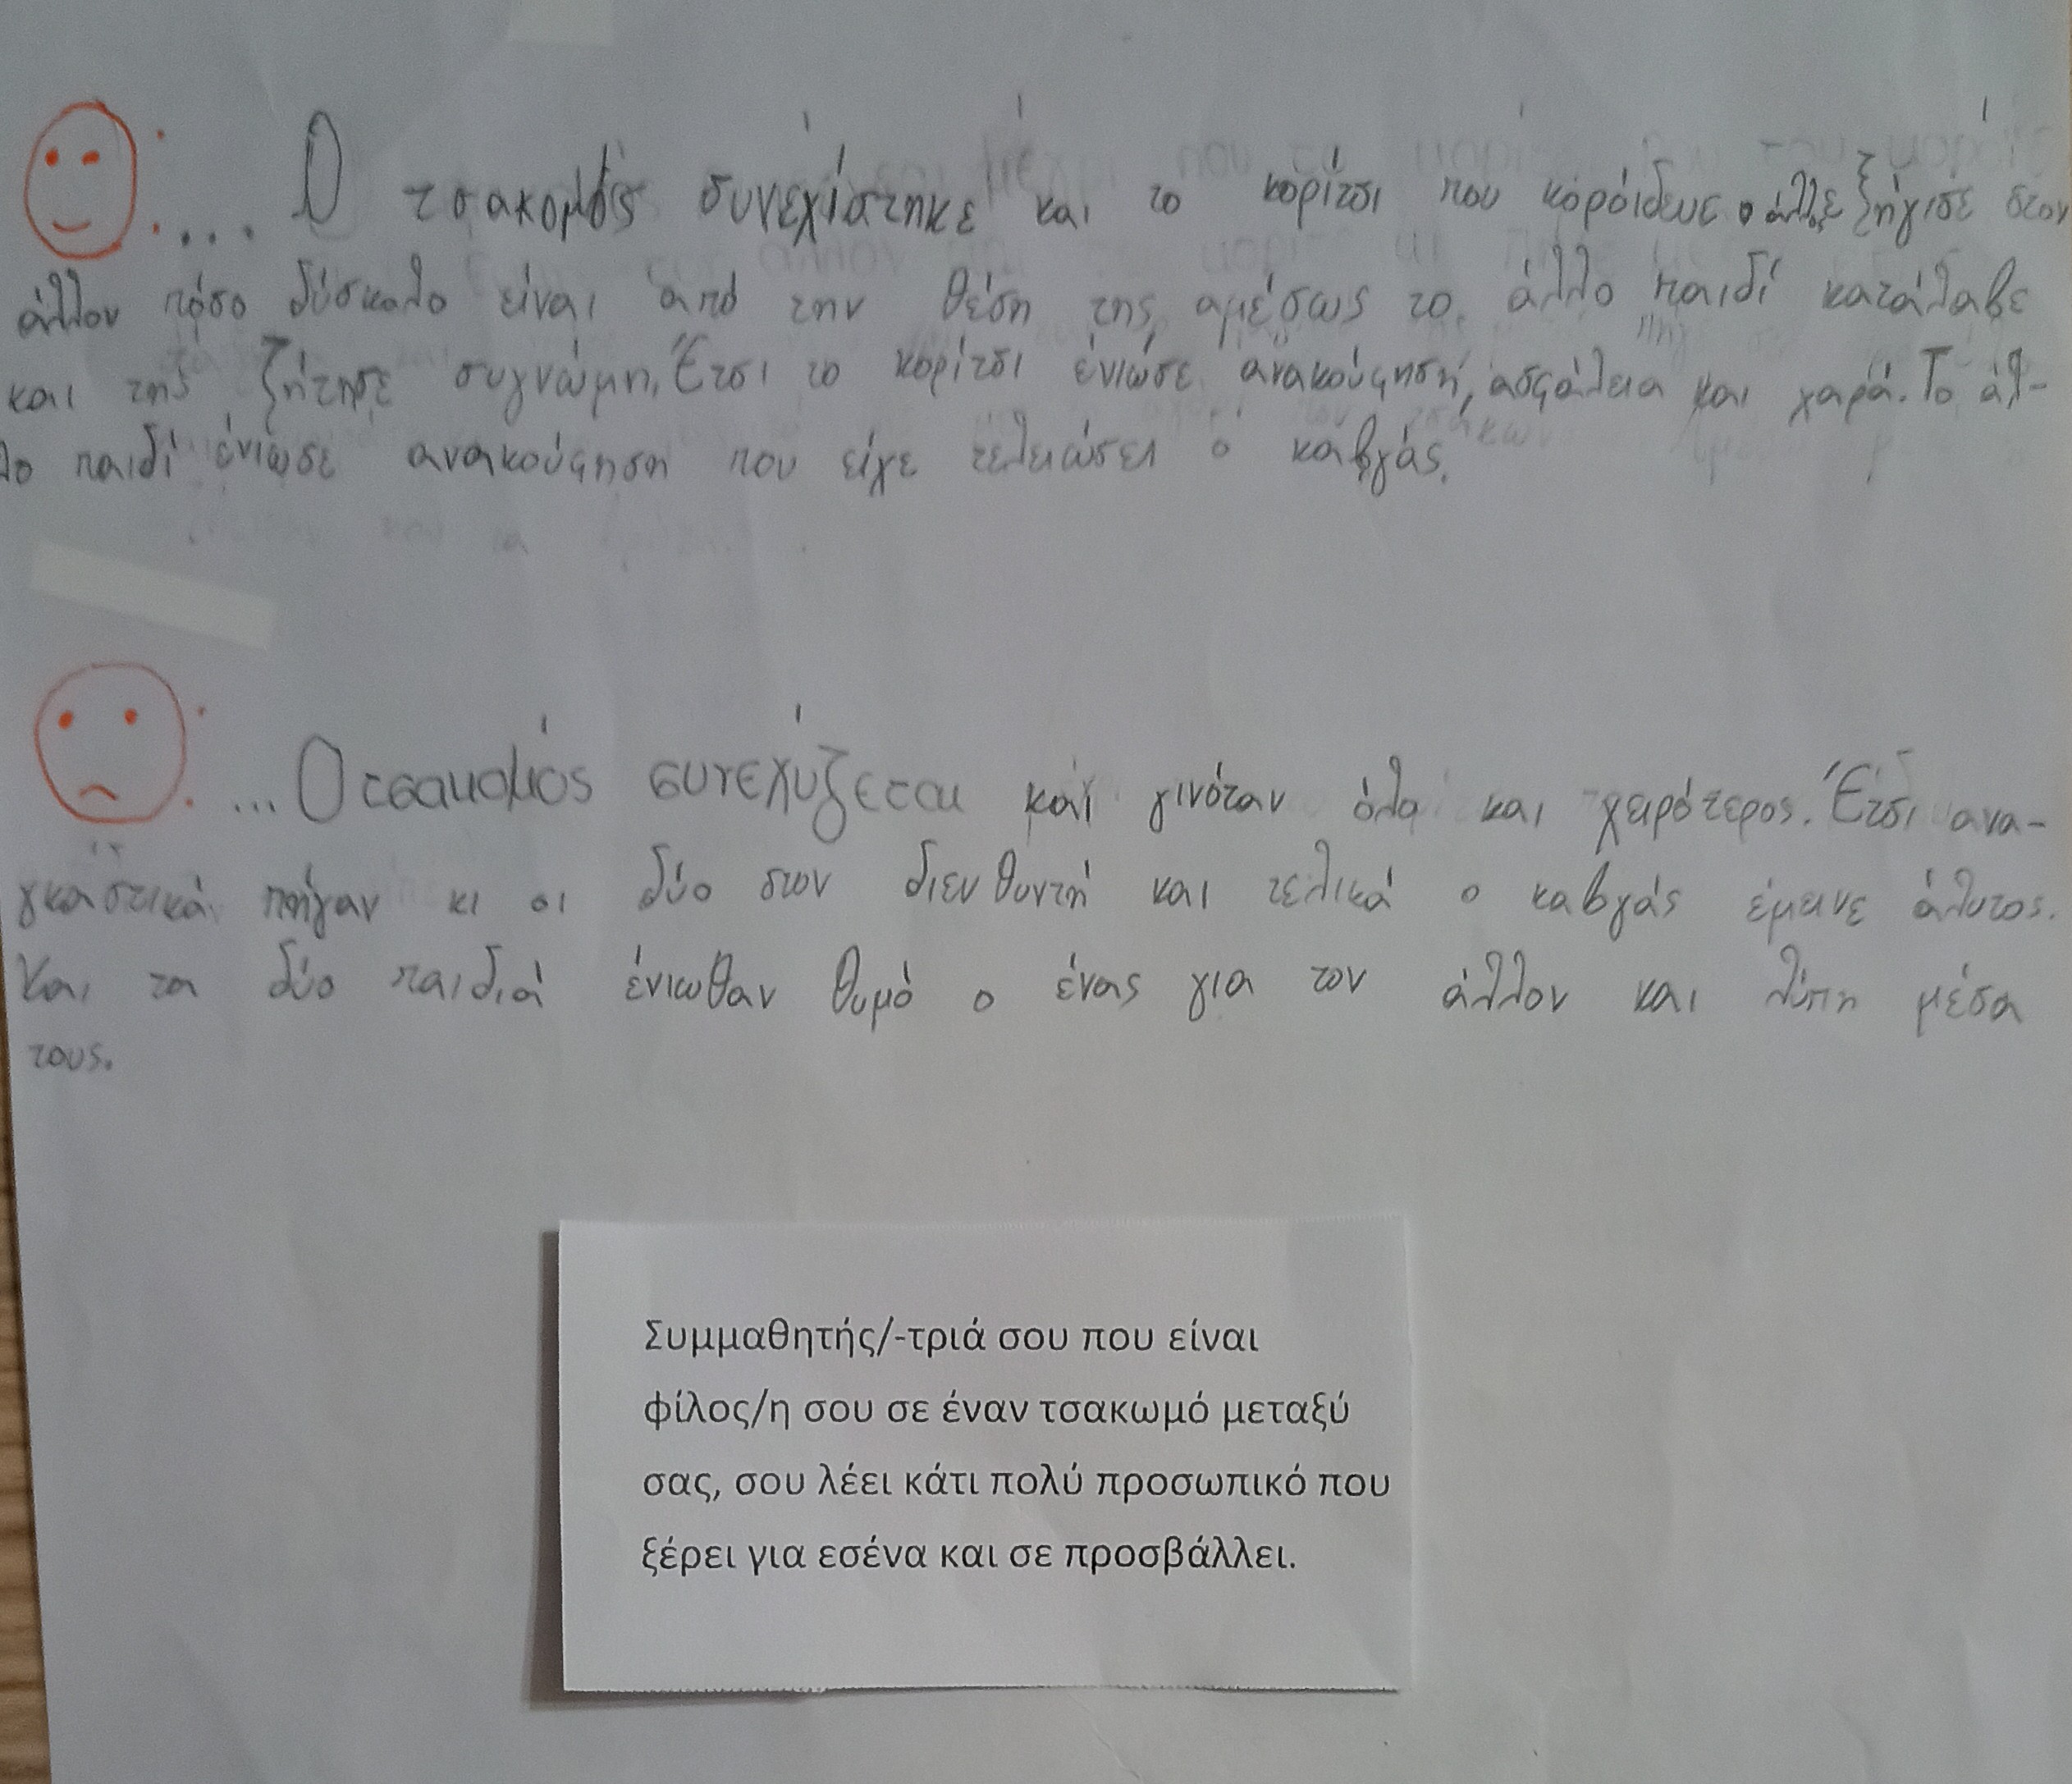 .... Ο τσακομός συνεχίστηκε και το κορίτσι που κορόιδευε ο άλλος εξήγισε στον
άλλον πόσο δύσκολο είναι από την θέση της, αμέσως το άλλο παιδί κατάλαβε
και της ζήτησε συγνώμη. Έτσι το κορίτσι ένιωσε ανακούφηση, ασφάλεια και χαρά. Το άλ-
λο παιδί ένιωσε ανακούφηση που είχε τελειώσει ο καβγάς.
... Ο τσακομός συνεχύζεται και γινόταν όλο και χειρότερος. Έτσι ανα-
γκαστικά πήγαν κι οι δύο στον διευθυντή και τελικά ο καβγάς έμεινε άλυτος.
Και τα δύο παιδιά ένιωθαν θυμό ο ένας για τον άλλον και λύπη μέσα
τους.
Συμμαθητής/-τριά σου που είναι
φίλος/η σου σε έναν τσακωμό μεταξύ
σας, σου λέει κάτι πολύ προσωπικό που
ξέρει για εσένα και σε προσβάλλει.